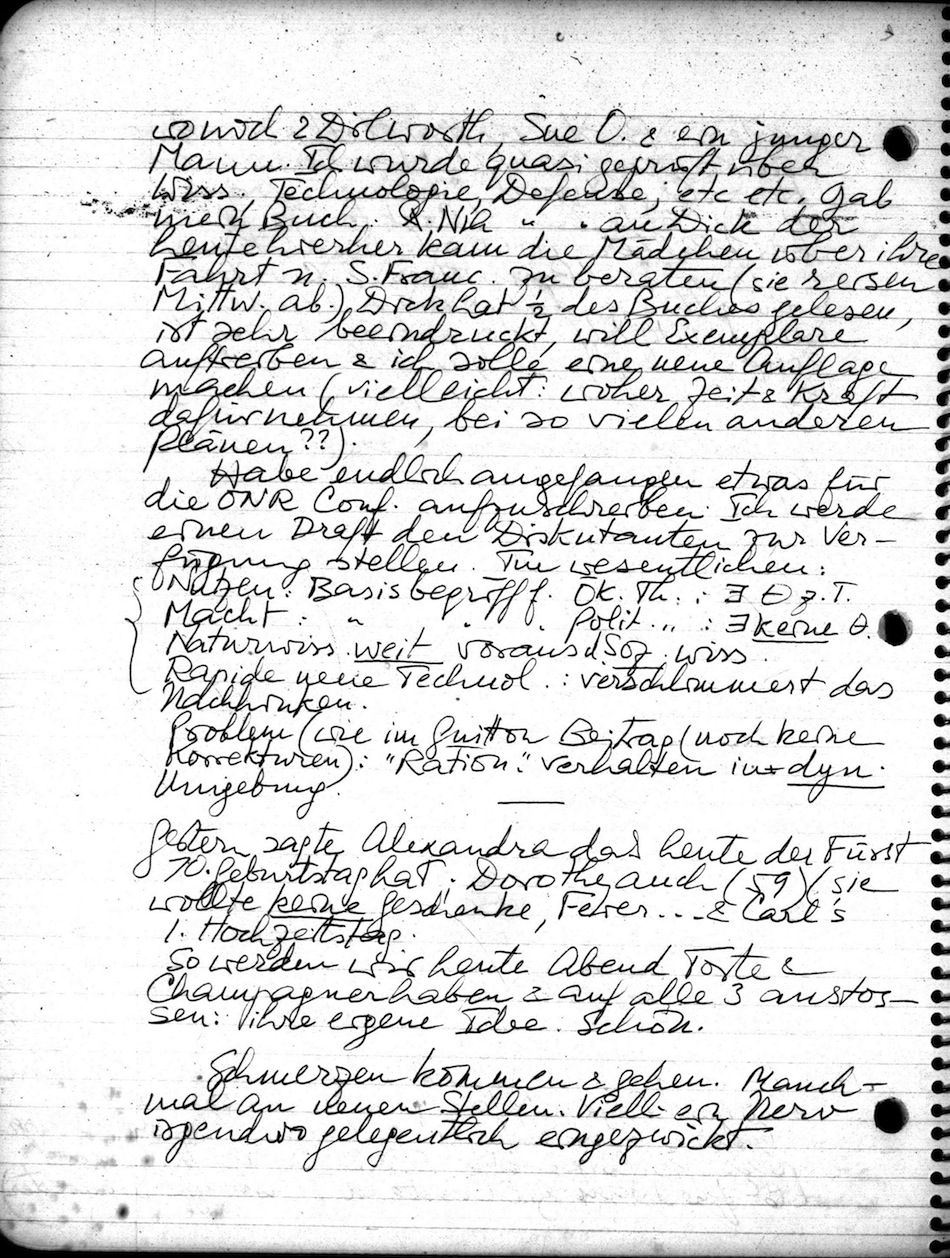 wo noch 2 Dilworth, Sue O. & ein junger
Mann. Ich wurde quasi geprüft über
Wiss., Technologie, Defense, etc etc. Gab
mein Buch. " " an Dick der
heute hierher kam die Mädchen über ihre
Fahrt n. S. Franc. zu beraten (sie reisen
Mittw. ab). Dick hat ½ des Buches gelesen,
ist sehr beeindruckt, will Exemplare
auftreiben & ich solle eine neue Auflage
machen (vielleicht: woher Zeit & Kraft
dafür nehmen, bei so vielen anderen
Plänen??).
Habe endlich angefangen etwas für
die ONR Conf. aufzuschreiben. Ich werde
einen Draft den Diskutanten zur Ver-
fügung stellen. Im wesentlichen:
Nutzen: Basisbegriff f. Ök. Th.: ∃ Θ z.T.
Macht: " . . Polit. ": ∃ keine Θ.
Naturwiss. weit voraus d Soz. wiss.
Rapide neue Technol.: verschlimmert das
Nachhinken.
Problem (wie im Beitrag (noch keine
Korrekturen): "Ration." verhalten in dyn.
Umgebung.
Gestern sagte Alexandra das heute der Fürst
70. Geburtstag hat. Dorothy auch (59) (sie
wollte keine Geschenke, Feier... & Carl's
1. Hochzeitstag.
So werden wir heute Abend Torte &
Champagner haben & auf alle 3 anstos-
sen: ihre eigene Idee. Schön.
Schmerzen kommen & gehen. Manch-
mal an neuen Stellen. Viell. ein Nerv
irgendwo gelegentlich eingezwickt.